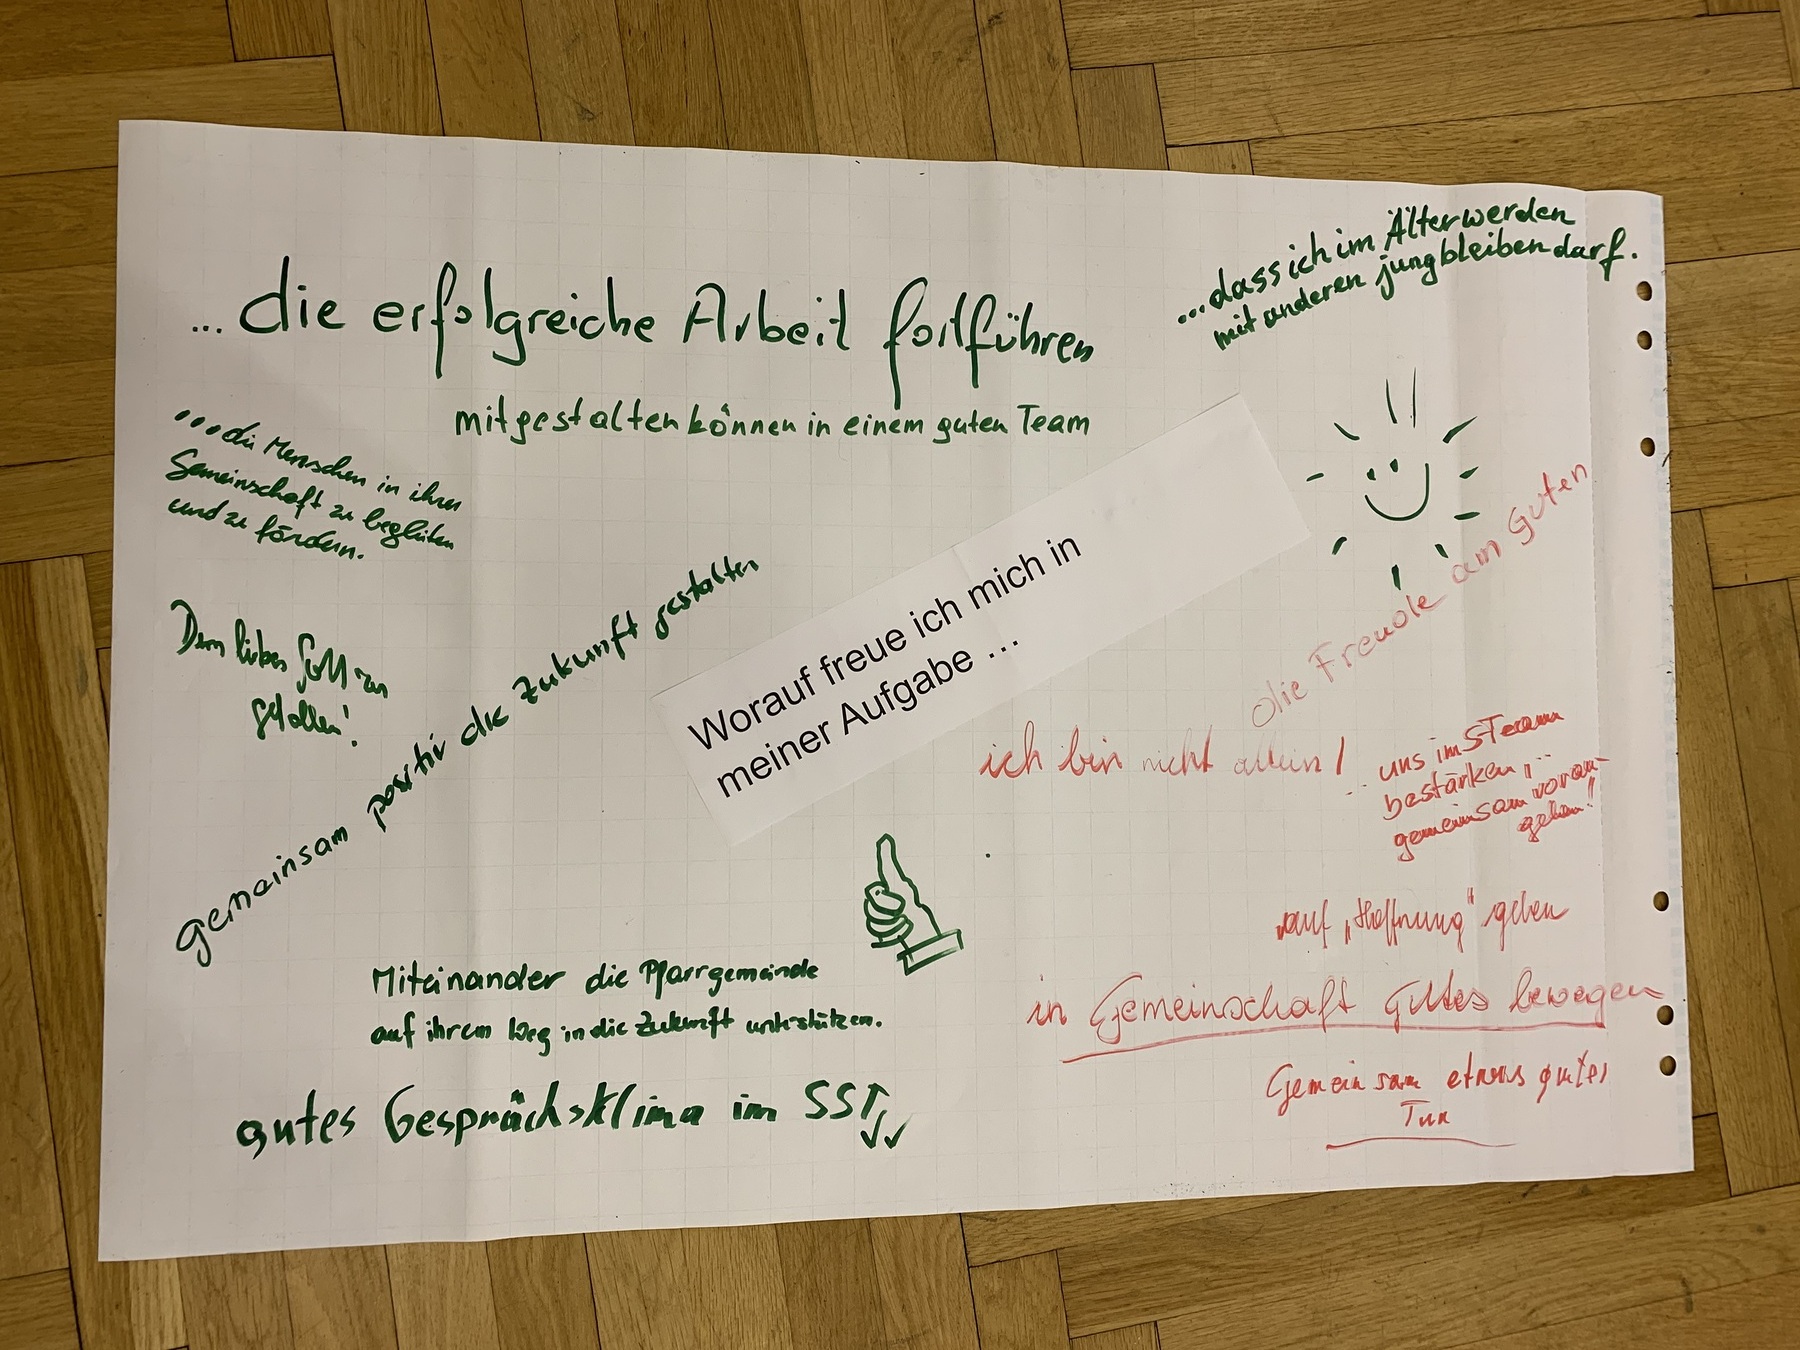 ...die erfolgreiche Arbeit fortführen
mitgestalten können in einem guten Team
...dass ich im Älterwerden
mit anderen jung bleiben darf.
...die Menschen in ihrer
Gemeinschaft zu begleiten
und zu fördern.
Dem lieben Gott zu
gefallen!
gemeinsam positiv die Zukunft gestalten
Worauf freue ich mich in
meiner Aufgabe ...
die Freude am Guten
ich bin nicht allein!
... uns im STeam
bestärken, ...
gemeinsam voran-
gehen!!
auf „Hoffnung“ gehen
in Gemeinschaft Gutes bewegen
Gemeinsam etwas gutes
Tun
Miteinander die Pfarrgemeinde
auf ihrem Weg in die Zukunft unterstützen.
gutes Gesprächsklima im SST